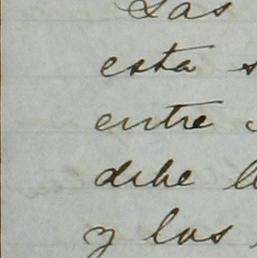 Las
esta s
entre
debe l
y los